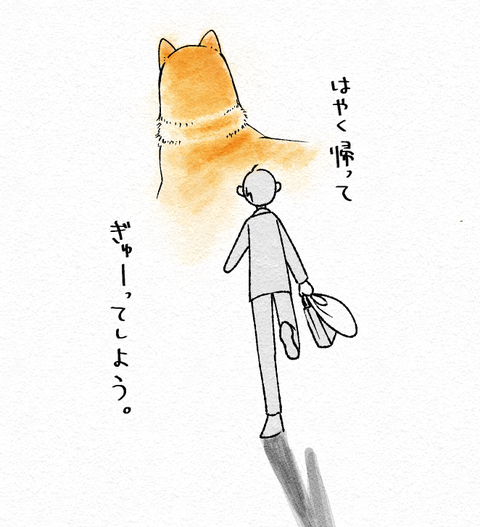 はやく帰って
ぎゅーってしよう。